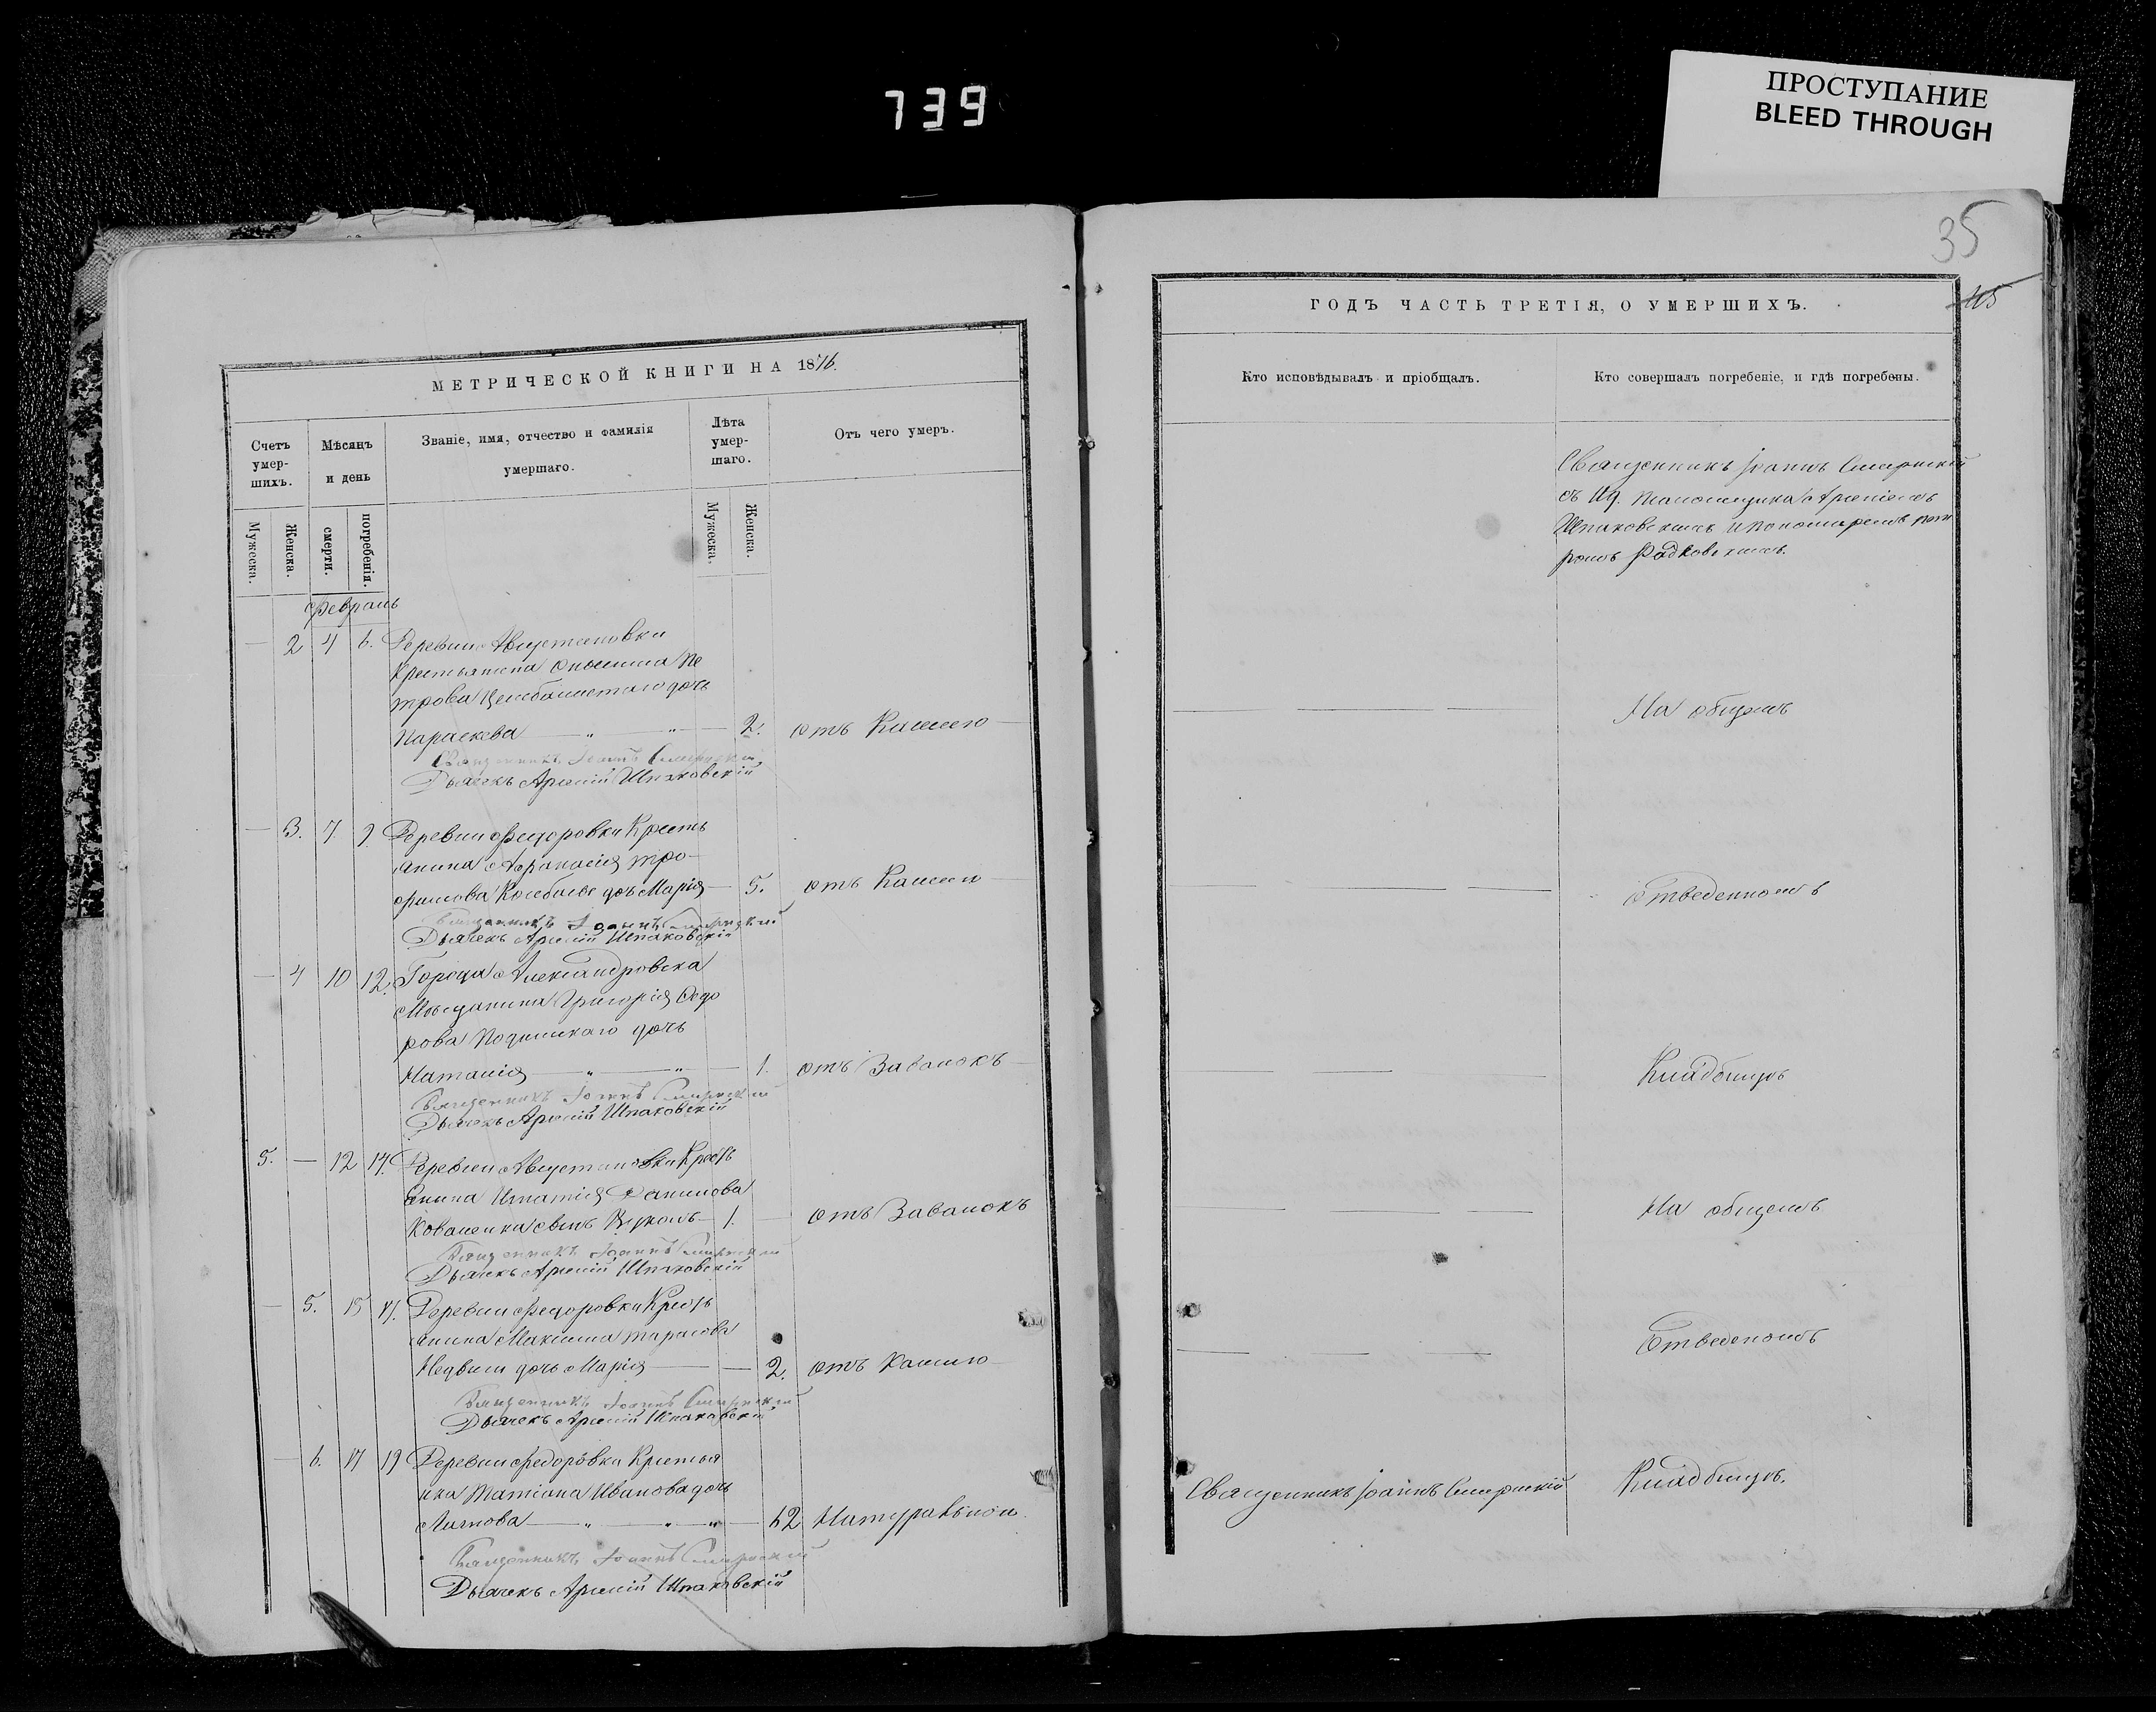 739
ПРОСТУПАНИЕ
BLEED THROUGH
35
45
МЕТРИЧЕСКОЙ КНИГИ НА 1876.
Счетъ умер-шихъ.
Мѣсяцъ и день
Званіе, имя, отчество и фамилія умершаго.
Лѣта умер-шаго.
Отъ чего умеръ.
Мужеска.
Женска.
смерти.
погребенія.
Мужеска.
Женска.
Февраль
2 4 6. Деревни Августиновки
Крестьянина Онисима Пе
трова дочь
Параскева 2. отъ Кашлю
Священникъ Іоаннъ
Дьячекъ Арсеній Шпаковскій
3. 7 9. Деревни Федоровки Кресть
янина Афанасія Тро-
фимова дочь Марія 5. отъ Кашлю
Священникъ Іоаннъ
Дьячекъ Арсеній Шпаковскій
4 10 12. Города Александровска
Мѣщанина Григорія Федо
рова дочь
Наталія 1. отъ Завалокъ
Священникъ Іоаннъ
Дьячекъ Арсеній Шпаковскій
5. 12 14. Деревни Августиновки Кресть
янина Игнатія Данилова
Коваленка сынъ 1. отъ Завалокъ
Священникъ Іоаннъ
Дьячекъ Арсеній Шпаковскій
5. 15 17. Деревни Федоровки Кресть
янина Максима Тарасова
дочь Марія 2. отъ Кашлю
Священникъ Іоаннъ
Дьячекъ Арсеній Шпаковскій
6. 17 19 Деревни Федоровки Крестья
нка Татіана Иванова дочь
62 Натуральною
Священникъ Іоаннъ
Дьячекъ Арсеній Шпаковскій
ГОДЪ ЧАСТЬ ТРЕТІЯ, О УМЕРШИХЪ.
Кто исповѣдывалъ и пріобщалъ.
Кто совершалъ погребеніе, и гдѣ погребены.
Священникъ Іоаннъ
съ Арсеніемъ
Шпаковскимъ и пономаремъ Пет
ромъ
На общемъ
Отведенномъ
Кладбищѣ
На общемъ
Отведеномъ
Священникъ Іоаннъ
Кладбищѣ.